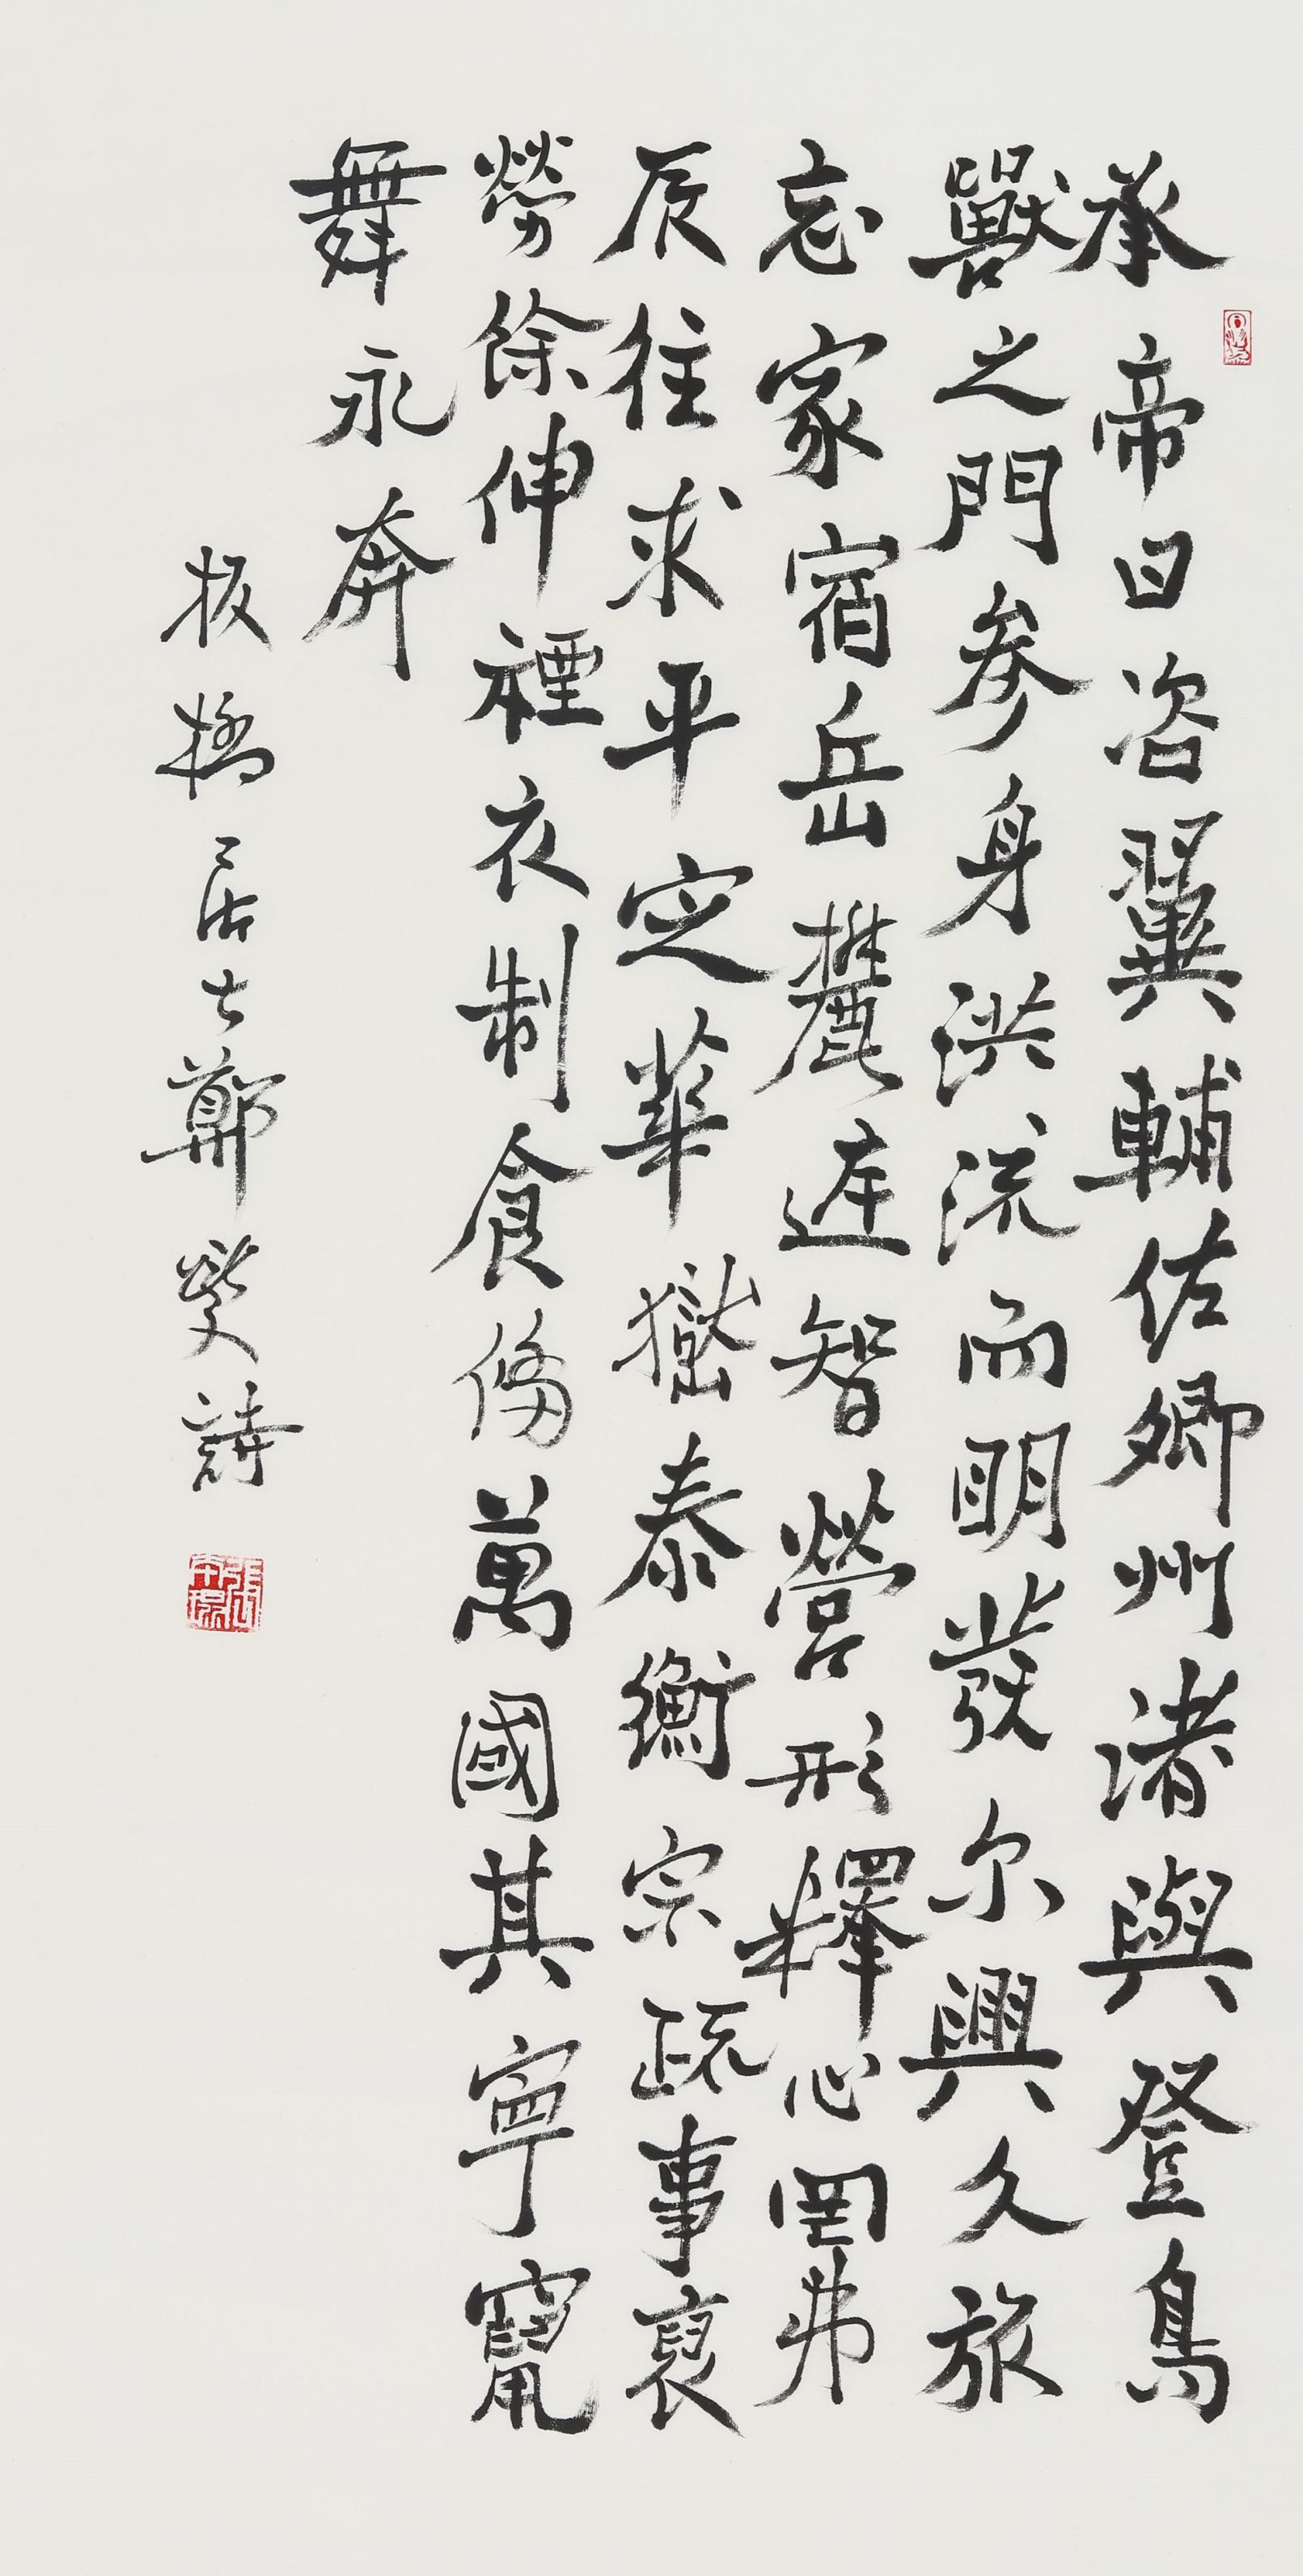 承帝曰咨翼輔佐卿州渚與登鳥
獸之門參身洪流而明發尔興久旅
忘家宿岳麓庭智營形釋心罔弗
辰往求平定華嶽泰衡宗疏事裒
勞餘伸禋衣制食俻萬國其寧竄
舞永奔
板橋居士鄭燮詩